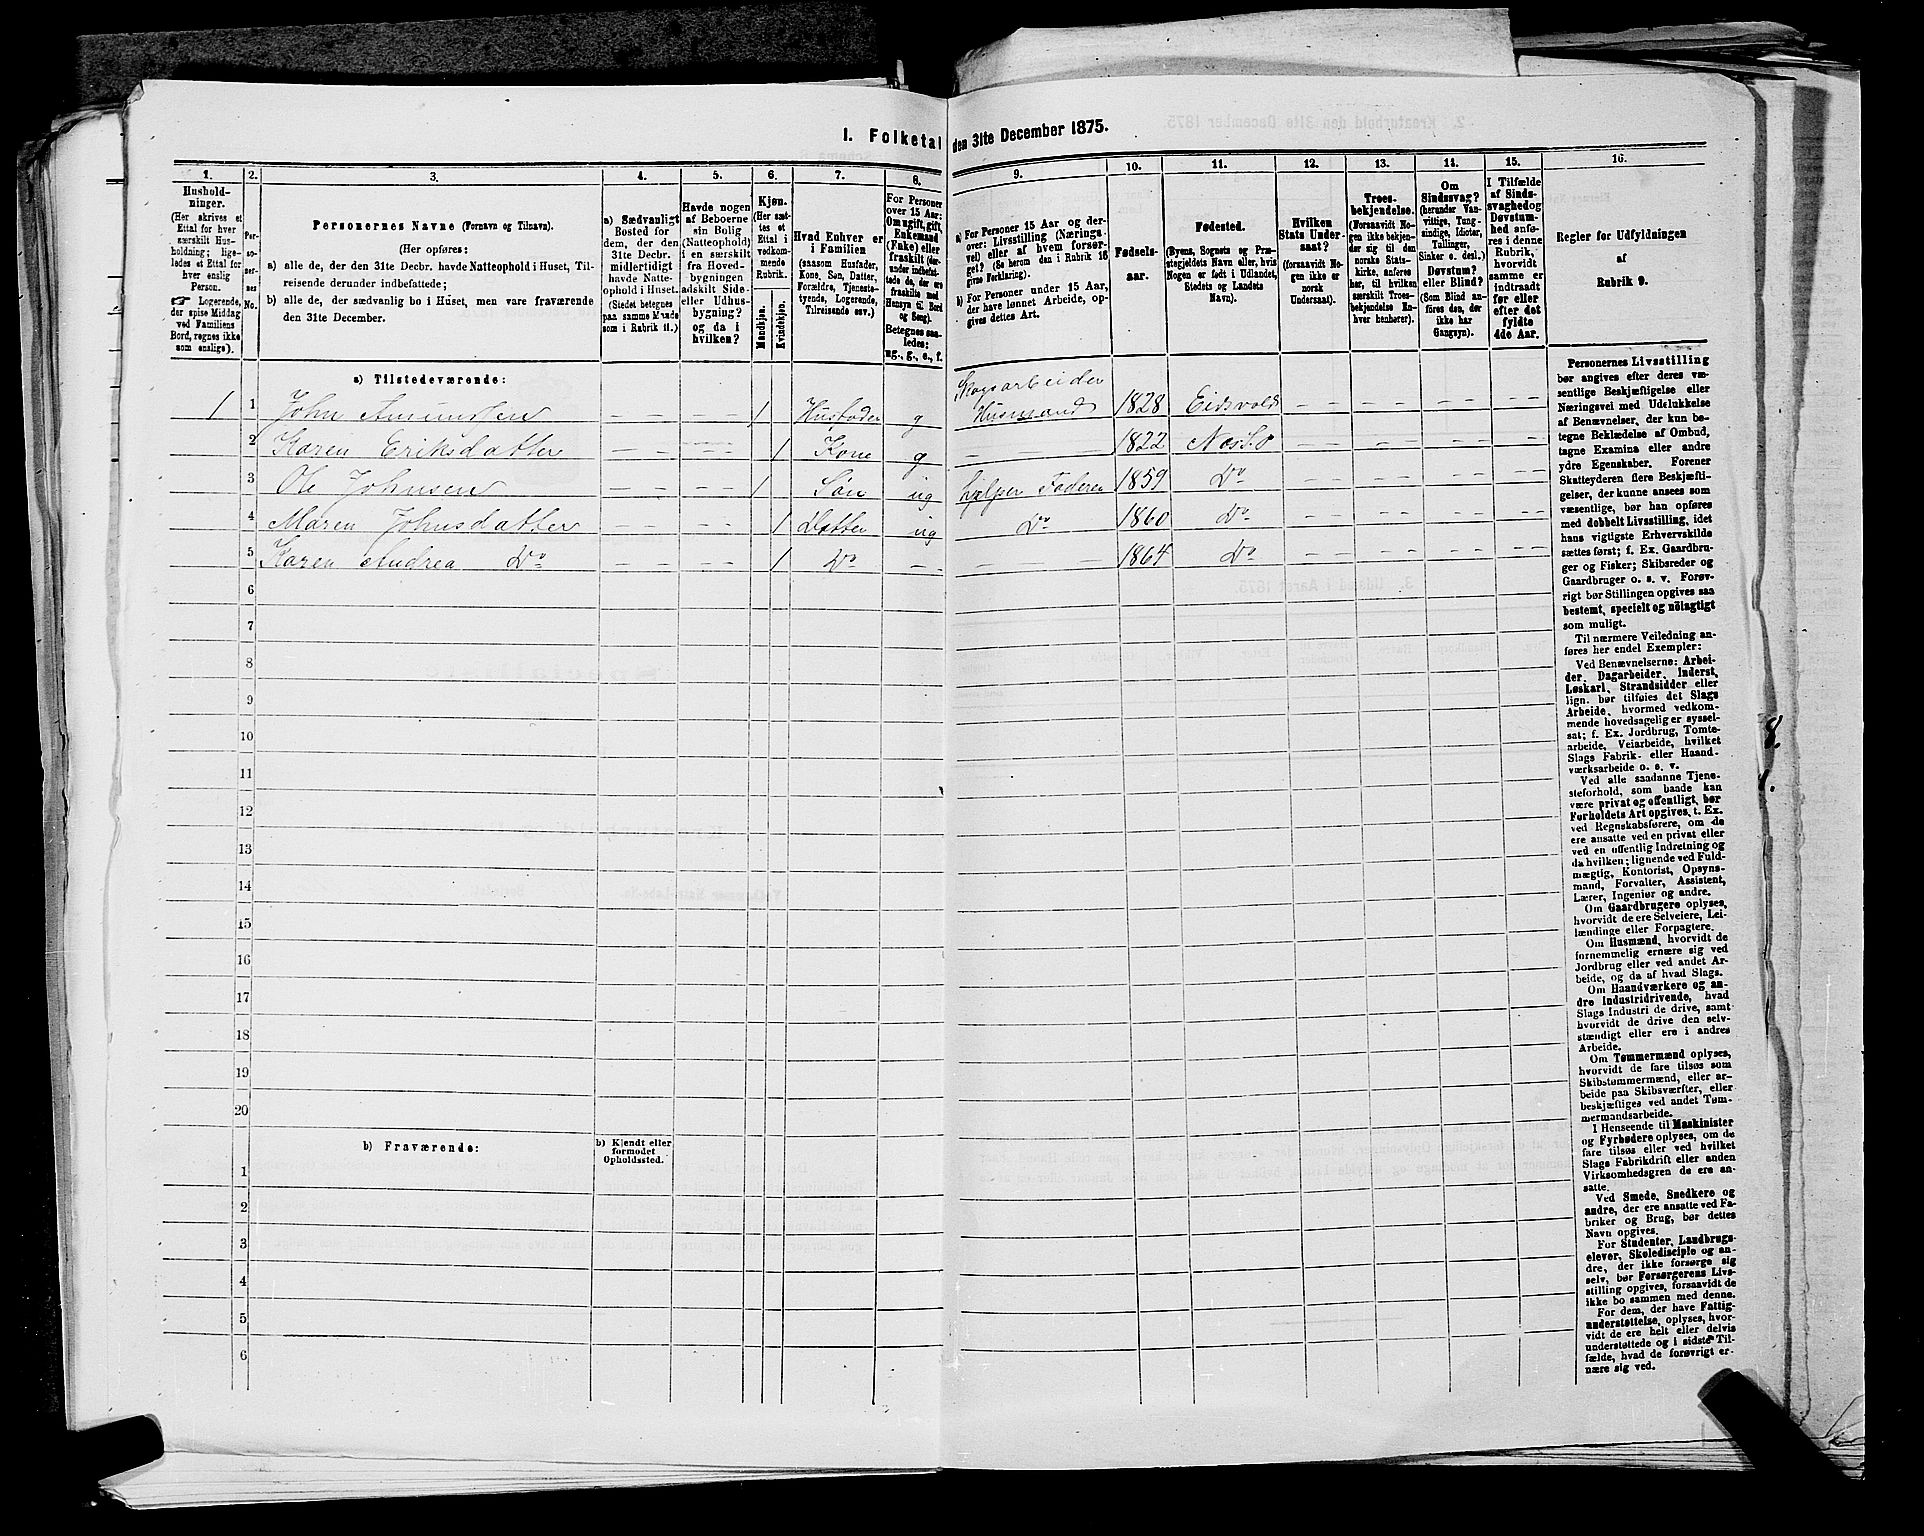 I. Folketal den 31te December 1875.
1.
2.
3.
4.
5.
6.
7.
8.
9.
10.
11.
12.
13.
14.
15.
16.
Hushold-
ninger.
(Her skrives et
Ettal for hver
særskilt Hus-
holdning; lige-
ledes et Ettal for
hver enslig
Person.
☞ Logerende,
der spise Middag
ved Familiens
Bord, regnes ikke
som enslige).
Per-
so-
ner-
nes
No.
Personernes Navne (Fornavn og Tilnavn).
(Her opføres:
a) alle de, der den 31te Decbr. havde Natteophold i Huset, Til-
reisende derunder indbefattede;
b) alle de, der sædvanlig bo i Huset, men vare fraværende
den 31te December.
a) Sædvanligt
Bosted for
dem, der den
31te Decbr.
midlertidigt
havde Natte-
ophold i Huset.
(Stedet betegnes
paa samme Maade
som i Rubrik 11.)
Havde nogen
af Beboerne
sin Bolig
(Natteophold)
i en særskilt
fra Hoved-
bygningen
adskilt Side-
eller Udhus-
bygning?
og da i
hvilken?
Kjøn.
(Her sæt-
tes et
Ettal i
vedkom-
mende
Rubrik.
Mandkjøn.
Kvindekjøn.
Hvad Enhver er
i Familien
(saasom Husfader,
Kone, Søn, Datter,
Forældre, Tjeneste-
tyende, Logerende,
Tilreisende osv.)
For Personer
over 15 Aar:
Om ugift, gift,
Enkemand
(Enke) eller
fraskilt (der-
under indbefat-
tede de, der ere
fraskilte med
Hensyn til Bord
og Seng).
Betegnes saa-
ledes:
ug., g., e., f.
a) For Personer 15 Aar og der-
over: Livsstilling (Nærings-
vei) eller af hvem forsør-
get? (Se herom den i Rubrik 16
givne Forklaring).
b) For Personer under 15 Aar,
der have lønnet Arbeide, op-
gives dettes Art.
Fødsels-
aar.
Fødested.
(Byens, Sognets og Præ-
stegjeldets Navn eller, hvis
Nogen er født i Udlandet,
Stedets og Landets
Navn).
Hvilken
Stats Under-
saat?
(forsaavidt No-
gen ikke er
norsk
Undersaat).
Troes-
bekjendelse.
(Forsaavidt No-
gen ikke bekjen-
der sig til den
norske Stats-
kirke, anføres
her, til hvilken
særskilt Troes-
bekjendelse En-
hver henhører).
Om
Sindssvag?
(herunder Van-
vittige, Tung-
sindige, Idioter,
Tullinger,
Sinker o. desl.)
Døvstum?
eller Blind?
(Som Blind an-
føres den, der
ikke har
Gangsyn).
I Tilfælde
af Sinds-
svaghed og
Døvstum-
hed anfø-
res i denne
Rubrik,
hvorvidt
samme er
indtraadt
før eller
efter det
fyldte
4de Aar.
Regler for Udfyldningen
af
Rubrik 9.
a) Tilstedeværende:
1 1 John Amundsen – – – – – 1 Husfader g Skogsarbeider
Husmand 1828 Eidsvold – – –
2 Karen Eriksdatter – – – 1 Kone g – – – 1822 Næs S. o – – –
3 Ole Johnsen – – – 1 Søn ug hjelper Faderen 1859 Do
4 Maren Johnsdatter – – – 1 Datter ug Do 1860 Do
5 Karen Andrea Do – – – 1 Do – – – – 1864 Do
6
7
8
9
10
11
12
13
14
15
16
17
18
19
20
b) Fraværende:
b) Kjendt eller
formodet
Opholdssted.
1
2
3
4
5
6
Personernes Livsstilling
bør angives efter deres væ-
sentlige Beskjæftigelse eller
Næringsvei med Udelukkelse
af Benævnelser, der kun be-
tegne Beklædelse af Ombud,
tagne Examina eller andre
ydre Egenskaber. Forener
Skatteyderen flere Beskjæfti-
gelser, der kunne ansees som
væsentlige, bør han opføres
med dobbelt Livsstilling, idet
hans vigtigste Erhvervskilde
sættes først; f. Ex. Gaardbru-
ger og Fisker; Skibsreder og
Gaardbruger o. s. v. Forøv-
rigt bør Stillingen opgives saa
bestemt, specielt og nöiagtigt
som muligt.
Til nærmere Veiledning an-
føres her endel Exempler:
Ved Benævnelserne: Arbei-
der, Dagarbeider, Inderst,
Løskarl, Strandsidder eller
lign. bør tilføies det Slags
Arbeide, hvormed vedkom-
mende hovedsagelig er syssel-
sat; f. Ex. Jordbrug, Tomte-
arbeide, Veiarbeide, hvilket
Slags Fabrik- eller Haand-
værksarbeide o. s. v.
Ved alle saadanne Tjene-
steforhold, som baade kan
være privat og offentligt, bør
Forholdets Art opgives, t. Ex.
ved Regnskabsførere, om de
ere ansatte ved en privat eller
ved en offentlig Indretning og
da hvilken; lignende ved Fuld-
mægtig, Kontorist, Opsyns-
mand, Forvalter, Assistent,
Lærer, Ingeniør og andre.
Om Gaardbrugere oplyses,
hvorvidt de ere Selveiere, Lei-
lændinge eller Forpagtere.
Om Husmænd, hvorvidt de
fornemmelig ernære sig ved
Jordbrug eller ved andet Ar-
beide, og da af hvad Slags.
Om Haandværkere og an-
dre Industridrivende, hvad
Slags Industri de drive, samt
hvorvidt de drive den selv-
stændigt eller ere i andres
Arbeide.
Om Tømmermænd oplyses,
hvorvidt de fare tilsøs som
Skibstømmermænd, eller ar-
beide paa Skibsværfter, eller
beskjæftiges ved andet Tøm-
mermandsarbeide.
I Henseende til Maskinister
og Fyrbødere oplyses, om de
fare tilsøs eller ved hvilket
Slags Fabrikdrift eller anden
Virksomhedsgren de ere an-
satte.
Ved Smede, Snedkere og
andre, der ere ansatte ved Fa-
briker og Brug, bør dettes
Navn opgives.
For Studenter, Landbrugs-
elever, Skoledisciple og an-
dre, der ikke forsørge sig
selv, bør Forsørgerens Livs-
stilling opgives, forsaavidt de
ikke bo sammen med denne.
For dem, der have Fattig-
understøttelse, oplyses, hvor-
vidt de ere helt eller delvis
understøttede og i sidste Til-
fælde, hvad de forøvrigt er-
nære sig ved.